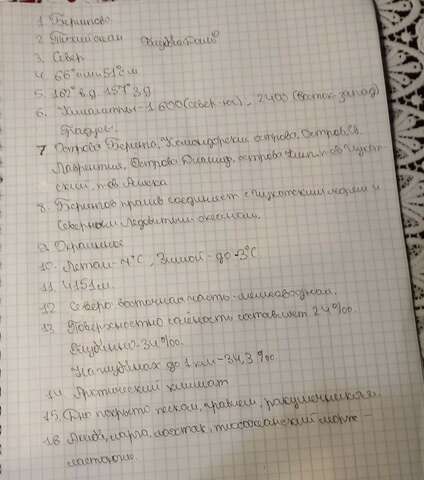 1. Берингово
2. Тихий океан
3. Север
4. 66° с.ш. 51° с.ш
5. 162° в.д 157° з.д
6. Километры - 1 600 (север-юг) - 2400 (восток-запад)
Градус.
7 Острова Беринга, Командорские острова, Остров Св.
Лаврентия, Острова Диомида, острова п-ов Чукот-
ский, п-ов Аляска
8. Берингов пролив соединяет с Чукотским морем и
Северным Ледовитым океаном.
9. Окраинное
10. Летом - 7°C, Зимой - до -3°C
11. 4151 м.
12 Северо восточная часть - мелководная.
13 Поверхностно солёность составляет 24‰.
34‰.
На глубинах до 1 км - 34,3‰.
14 Арктический климат
15. Дно покрыто песком, гравием, ракушечником
16 морж -